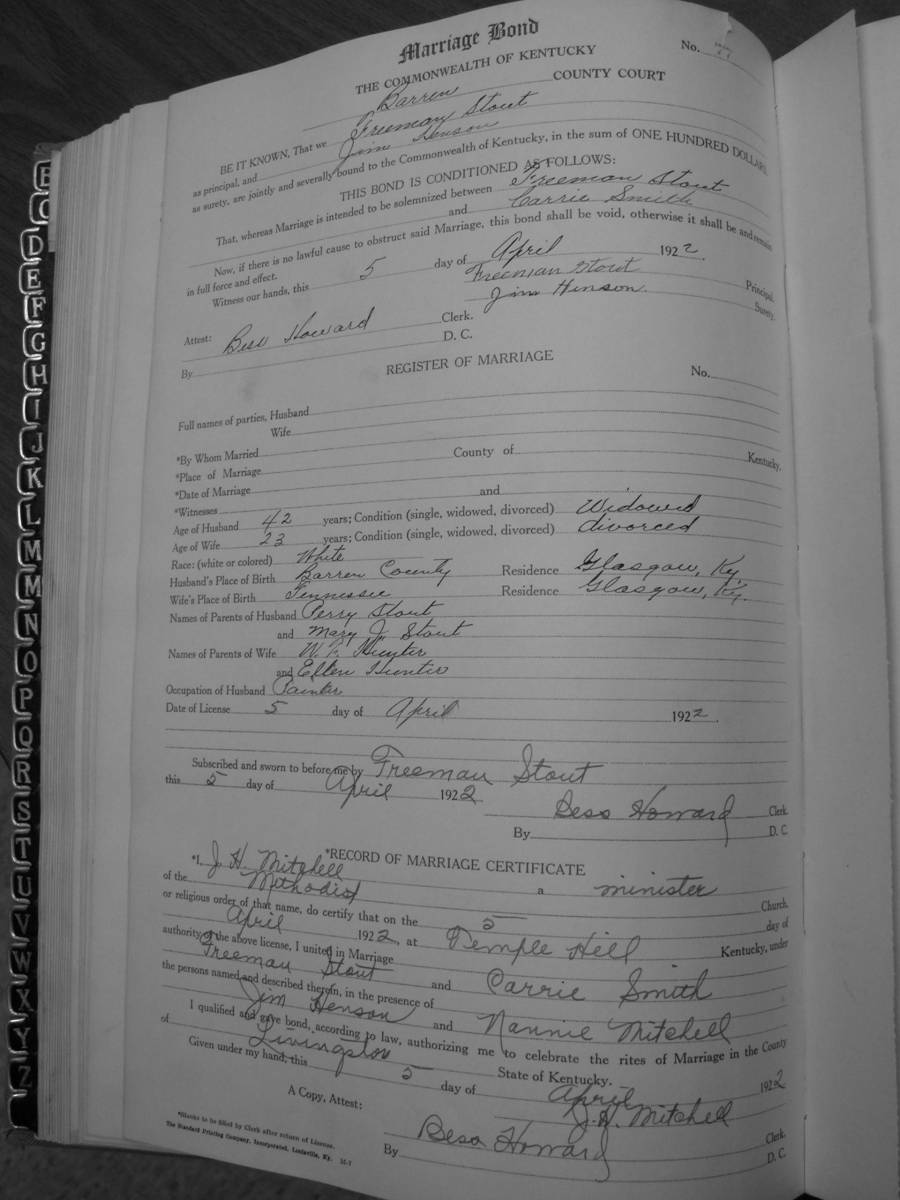 Marriage Bond
No.
THE COMMONWEALTH OF KENTUCKY
Barren COUNTY COURT
BE IT KNOWN, That we Freeman Stout
as principal, and Jim Henson
as surety, are jointly and severally bound to the Commonwealth of Kentucky, in the sum of ONE HUNDRED DOLLARS.
THIS BOND IS CONDITIONED AS FOLLOWS:
That, whereas Marriage is intended to be solemnized between Freeman Stout
and Carrie Smith
Now, if there is no lawful cause to obstruct said Marriage, this bond shall be void, otherwise it shall be and remain
in full force and effect.
Witness our hands, this 5 day of April 1922.
Freeman Stout Principal.
Jim Hinson. Surety.
Attest: Bess Howard Clerk.
By D. C.
REGISTER OF MARRIAGE
No.
Full names of parties, Husband
Wife
*By Whom Married
*Place of Marriage County of Kentucky,
*Date of Marriage
*Witnesses and
Age of Husband 42 years; Condition (single, widowed, divorced) Widowed
Age of Wife 23 years; Condition (single, widowed, divorced) divorced
Race: (white or colored) White
Husband's Place of Birth Barren County Residence Glasgow, Ky.
Wife's Place of Birth Tennessee Residence Glasgow, Ky.
Names of Parents of Husband Perry Stout
and Mary J. Stout
Names of Parents of Wife W. P. Hunter
and Ellen Hunter
Occupation of Husband Painter
Date of License 5 day of April 1922.
Subscribed and sworn to before me by Freeman Stout
this 5 day of April 1922
Bess Howard Clerk.
By D. C.
*RECORD OF MARRIAGE CERTIFICATE
*I, J. H. Mitchell a minister
of the Methodist Church.
or religious order of that name, do certify that on the 5 day of
April 1922, at Temple Hill Kentucky, under
authority of the above license, I united in Marriage
Freeman Stout and Carrie Smith
the persons named and described therein, in the presence of
Jim Henson and Nannie Mitchell
I qualified and gave bond, according to law, authorizing me to celebrate the rites of Marriage in the County
of Livingston State of Kentucky.
Given under my hand, this 5 day of April 1922
J. H. Mitchell
A Copy, Attest:
Bess Howard Clerk.
By D. C.
*Blanks to be filled by Clerk after return of License.
The Standard Printing Company, Incorporated, Louisville, Ky. M-7
B
C
D
E
F
G
H
I
J
K
L
M
M
N
O
P
Q
R
S
T
U
V
W
X
Y
Z